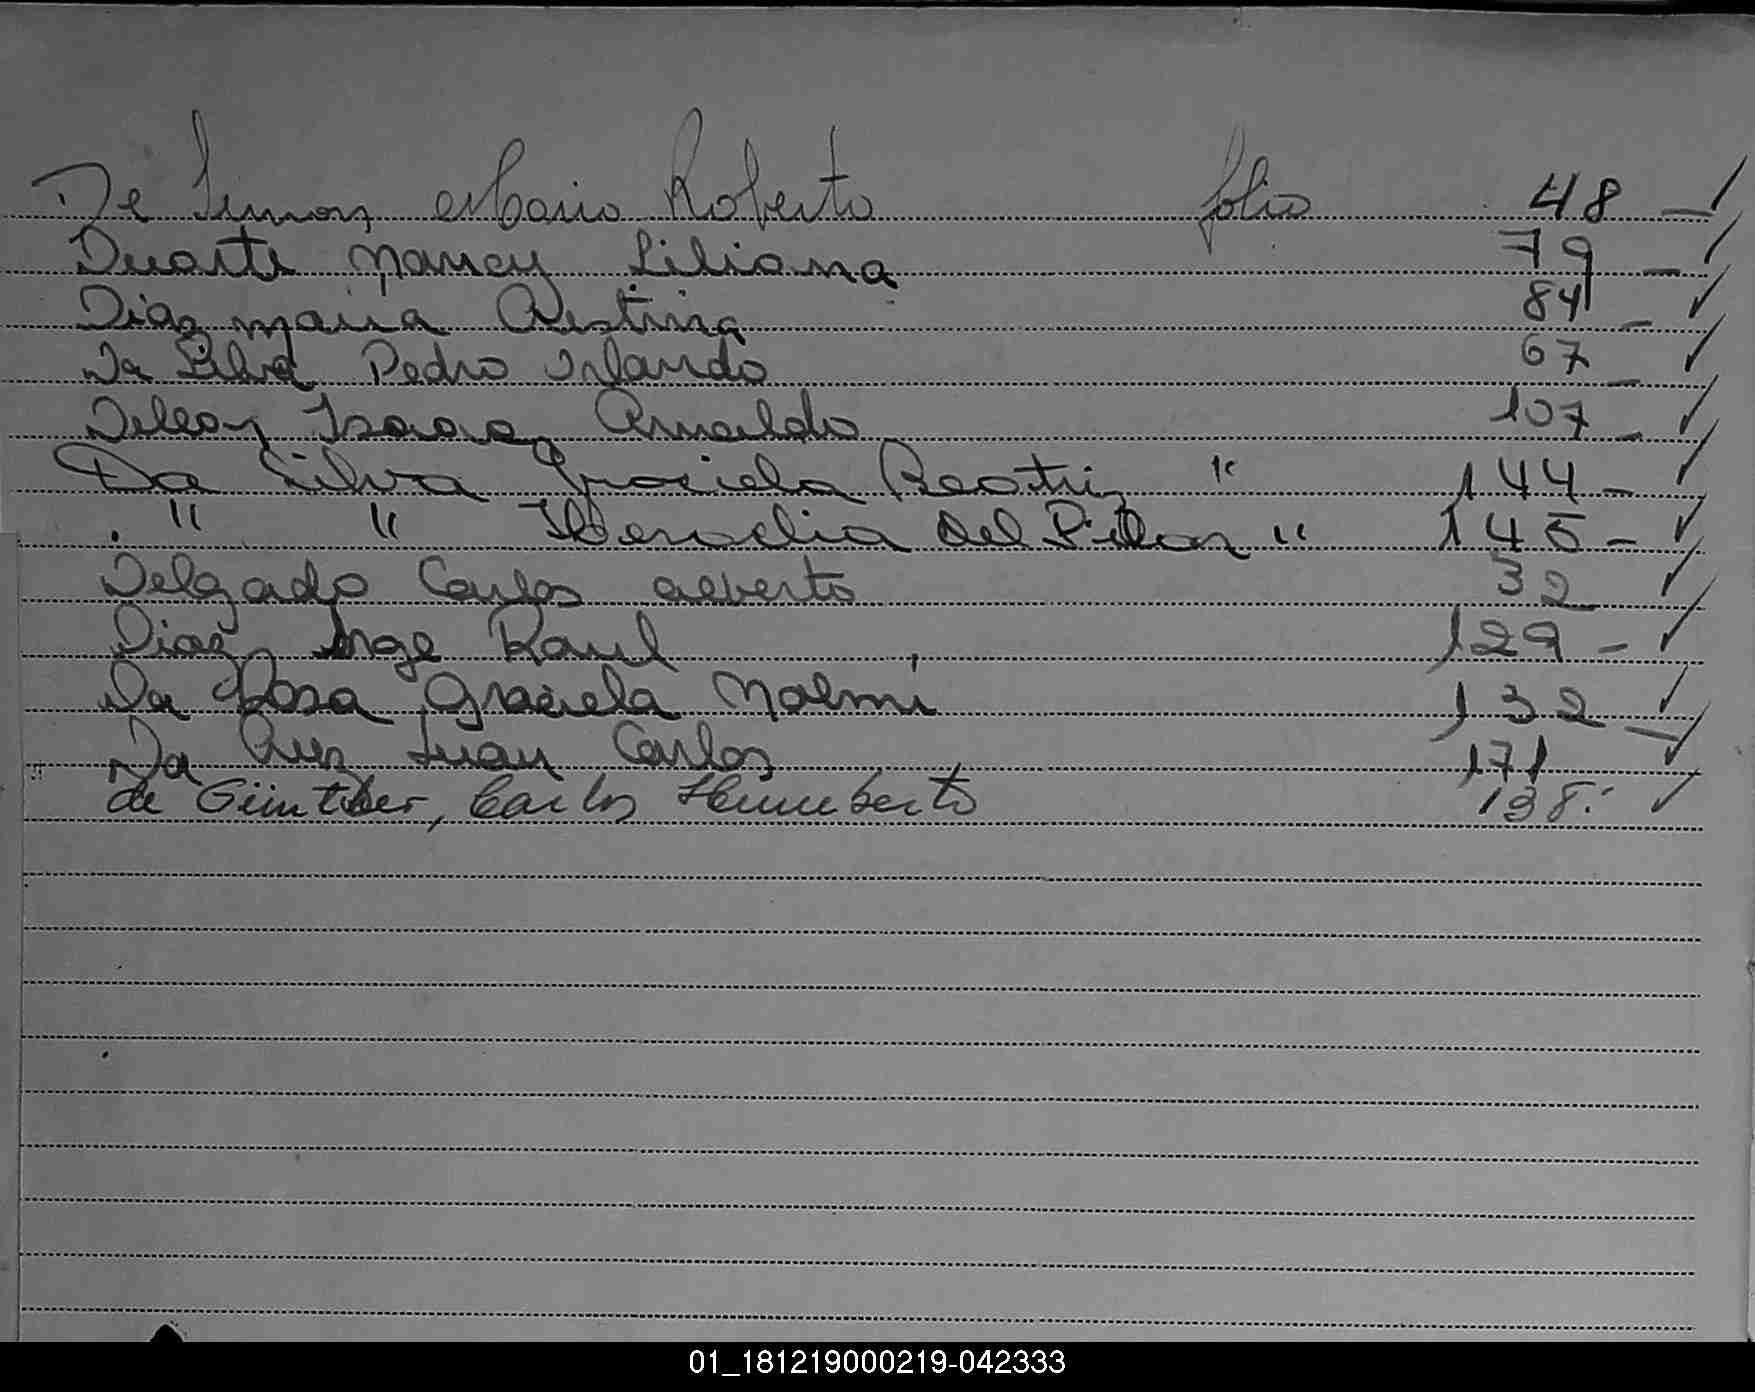 De Simon, Mario Roberto folio 48 —
Duarte Nancy Liliana 79 —
Diaz Maria Cristina 84 —
Da Silva Pedro Orlando 67 —
Deleon Isaac Arnaldo 107 —
Da Silva Graciela Beatriz " 144 —
" " Iberoclia Del Pilar " 145 —
Delgado Carlos Alberto 32
Diaz Jorge Raul 129 —
Da Rosa Graciela Noemi 132 —
Da Cruz Juan Carlos 171
de Günther, Carlos Humberto 138.
01_181219000219-042333